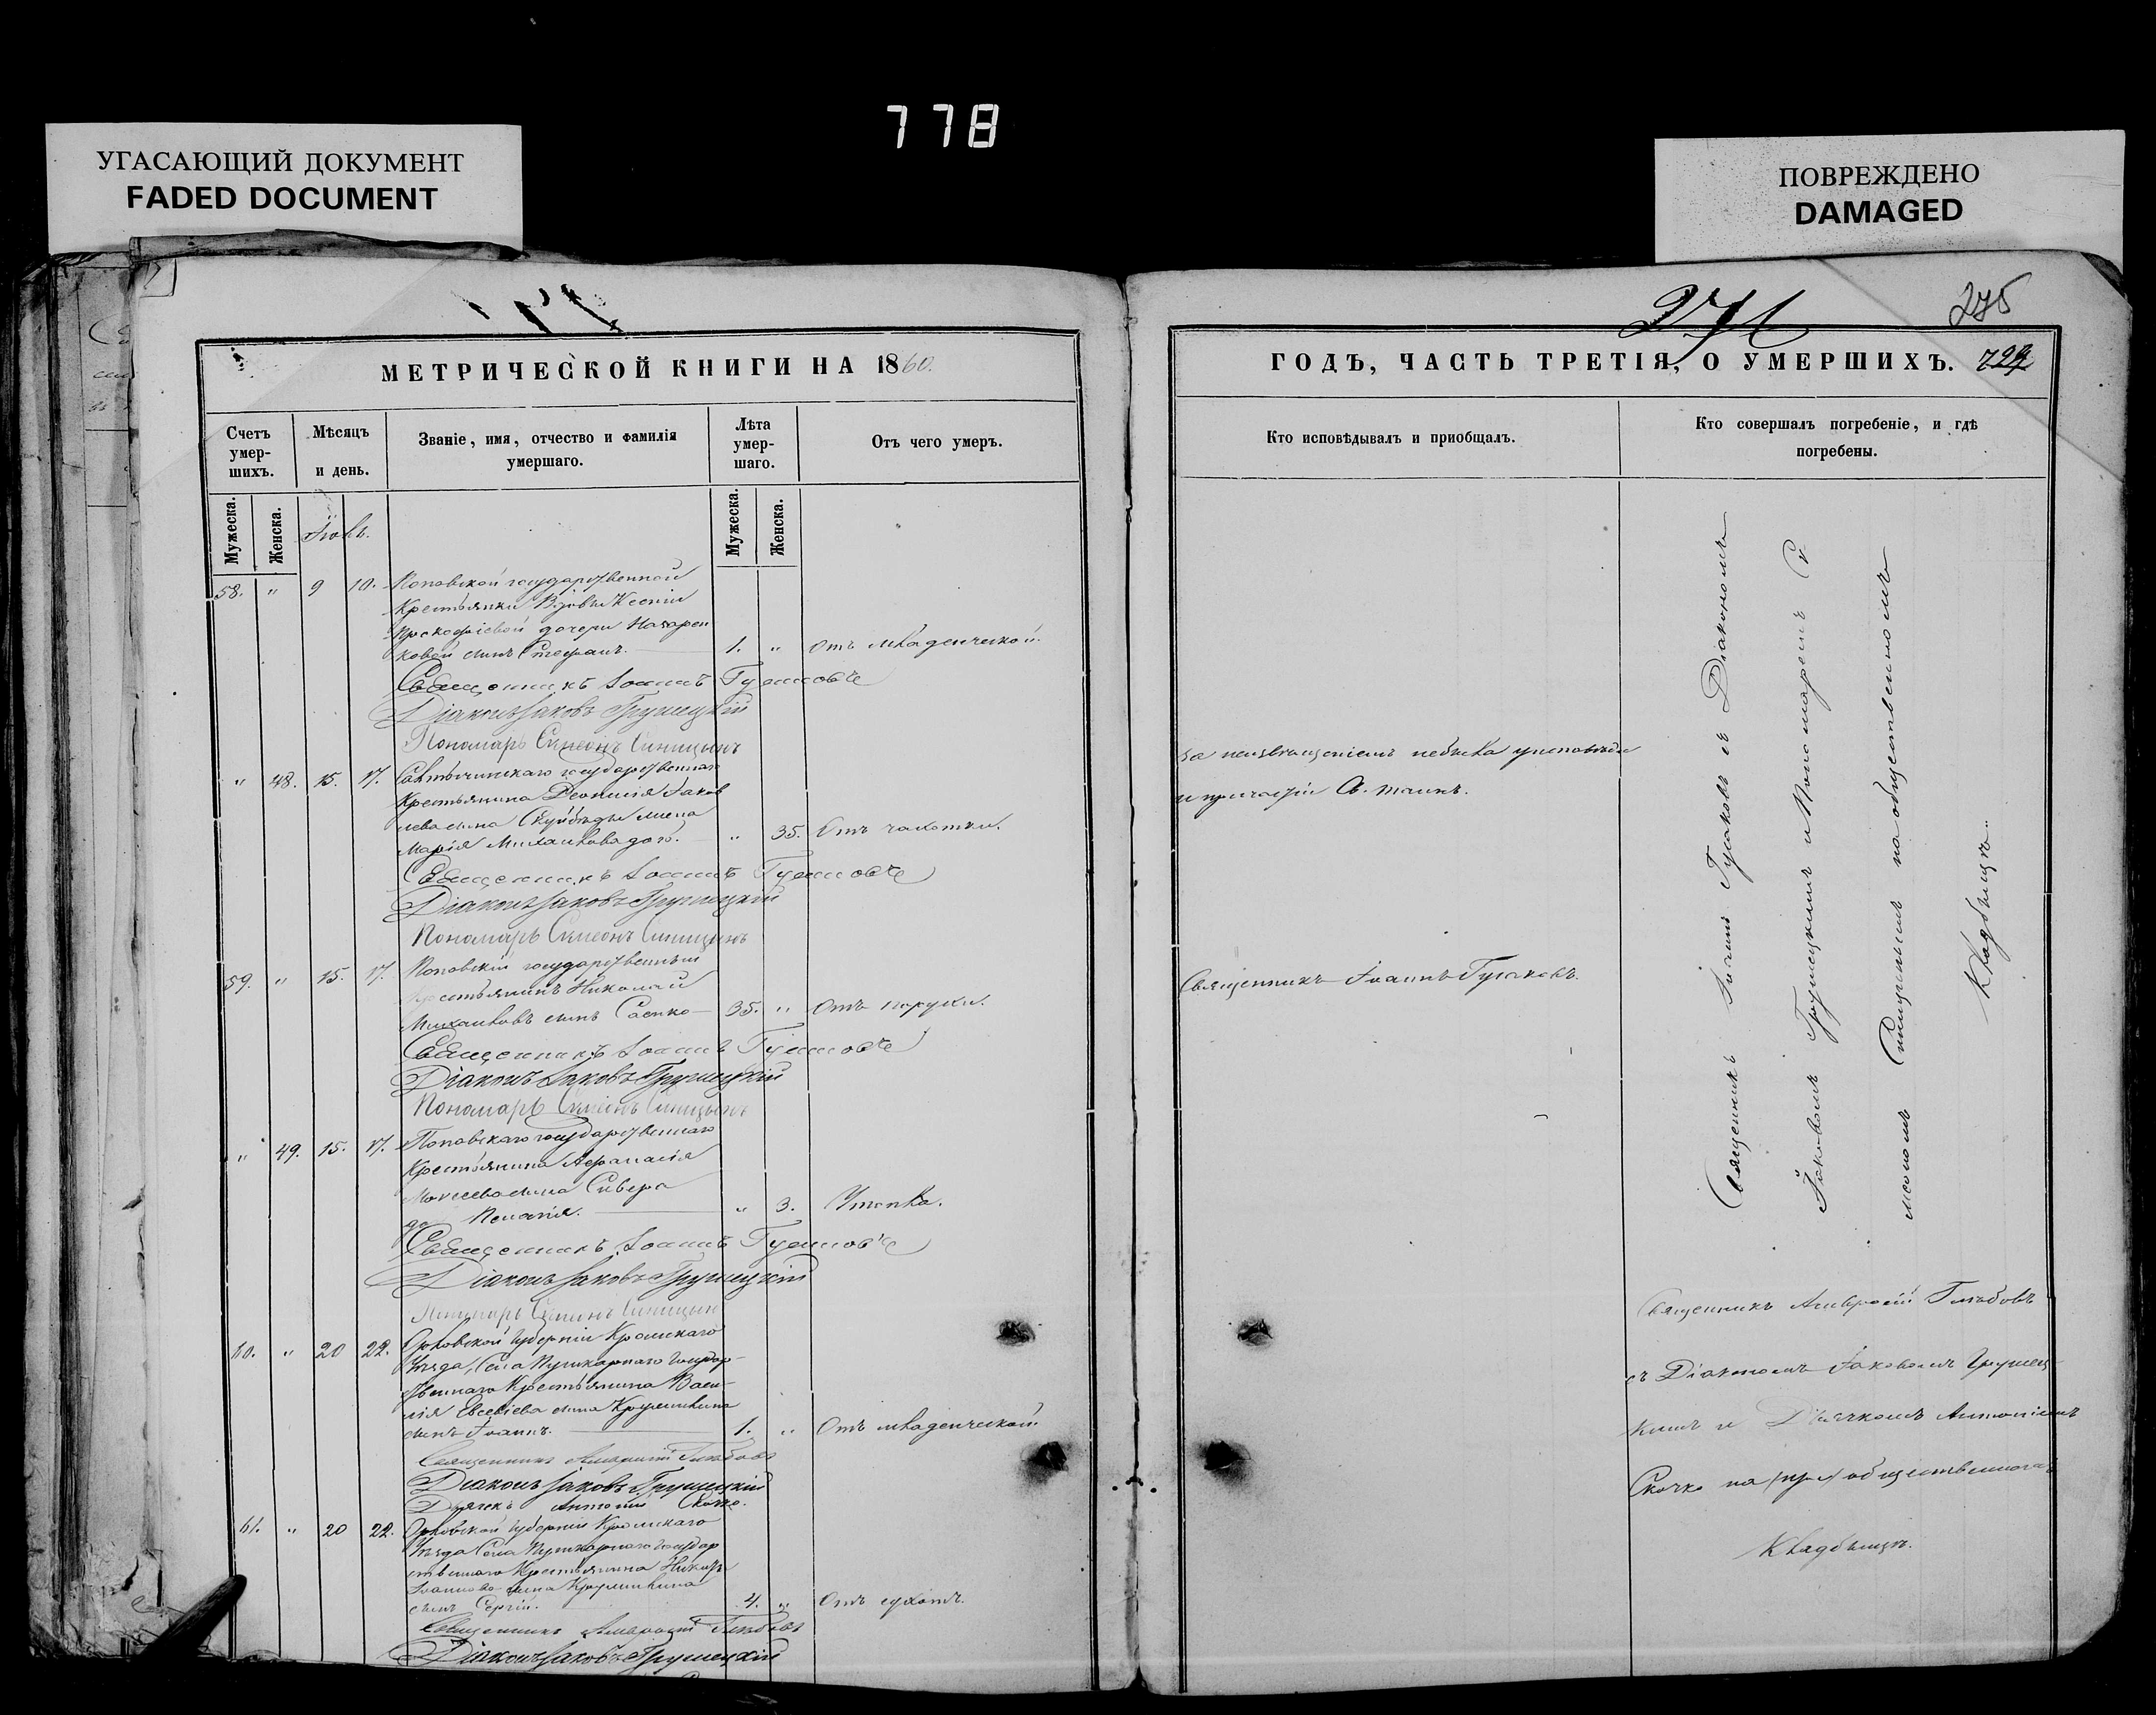 778
УГАСАЮЩИЙ ДОКУМЕНТ
FADED DOCUMENT
ПОВРЕЖДЕНО
DAMAGED
271
275
МЕТРИЧЕСКОЙ КНИГИ НА 1860.
Счетъ умер-шихъ.
Мѣсяцъ и день.
Званіе, имя, отчество и фамилія умершаго.
Лѣта умер-шаго.
Отъ чего умеръ.
Мужеска.
Женска.
Мужеска.
Женска.
58. " 9 10. Поповской государственной
Крестьянки Вдовы Ксеніи
Прокофіевой дочери Назарен
ковой сынъ Стефанъ. 1. " Отъ младенческой
Священникъ Іоаннъ
Діаконъ Іаковъ Грушецкій
Пономарь Симеонъ Синицынъ
" 48. 15. 17. государственнаго
Крестьянина Іаков
лева сына жена
Марія Михайлова доч. " 35. Отъ чахотки.
Священникъ Іоаннъ
Діаконъ Іаковъ Грушецкій
Пономарь Симеонъ Синицынъ
59. " 15. 17. Поповскій государственный
Крестьянинъ Николай
Михайловъ сынъ Саенко 35. " Отъ
Священникъ Іоаннъ
Діаконъ Іаковъ Грушецкій
Пономарь Симеонъ Синицынъ
" 49. 15. 17. Поповскаго государственнаго
Крестьянина Афанасія
Моисеева сына Сивера
до Пелагія. " 3. Утопла.
Священникъ Іоаннъ
Діаконъ Іаковъ Грушецкій
Пономарь Симеонъ Синицын
60. " 20 22. Орловской губерніи Кромскаго
Уѣзда, Села Пушкарнаго Государ-
ственнаго Крестьянина Васи-
лія Евсевіева сына
сынъ Іоаннъ. 1. " Отъ младенческой
Священникъ Амвросій Глѣбовъ
Діаконъ Іаковъ Грушецкій
Дьячекъ Антоній Скочко.
61. " 20 22. Орловской губерніи Кромскаго
Уѣзда Села Пушкарнаго Государ
ственнаго Крестьянина
Іванова сына
сынъ Сергій. 4. " Отъ сухотъ.
Священникъ Амвросій Глѣбовъ
Діаконъ Іаковъ Грушецкій
ГОДЪ, ЧАСТЬ ТРЕТІЯ, О УМЕРШИХЪ.
Кто исповѣдывалъ и пріобщалъ.
Кто совершалъ погребеніе, и гдѣ погребены.
за неизвѣщеніемъ небыла у исповѣди
и причастія Св. таинъ.
Священникъ Іоаннъ Гусаковъ.
Священникъ Іоаннъ Гусаковъ съ Діакономъ
Іаковомъ Грушецкимъ и Пономаремъ Си
меономъ Синицынымъ на общественномъ
Кладбищѣ.
Священникъ Амвросій Глѣбовъ
съ Діакономъ Іаковомъ Грушец
кимъ и Дьячкомъ Антоніемъ
Скочко на общественномъ
Кладбищѣ.